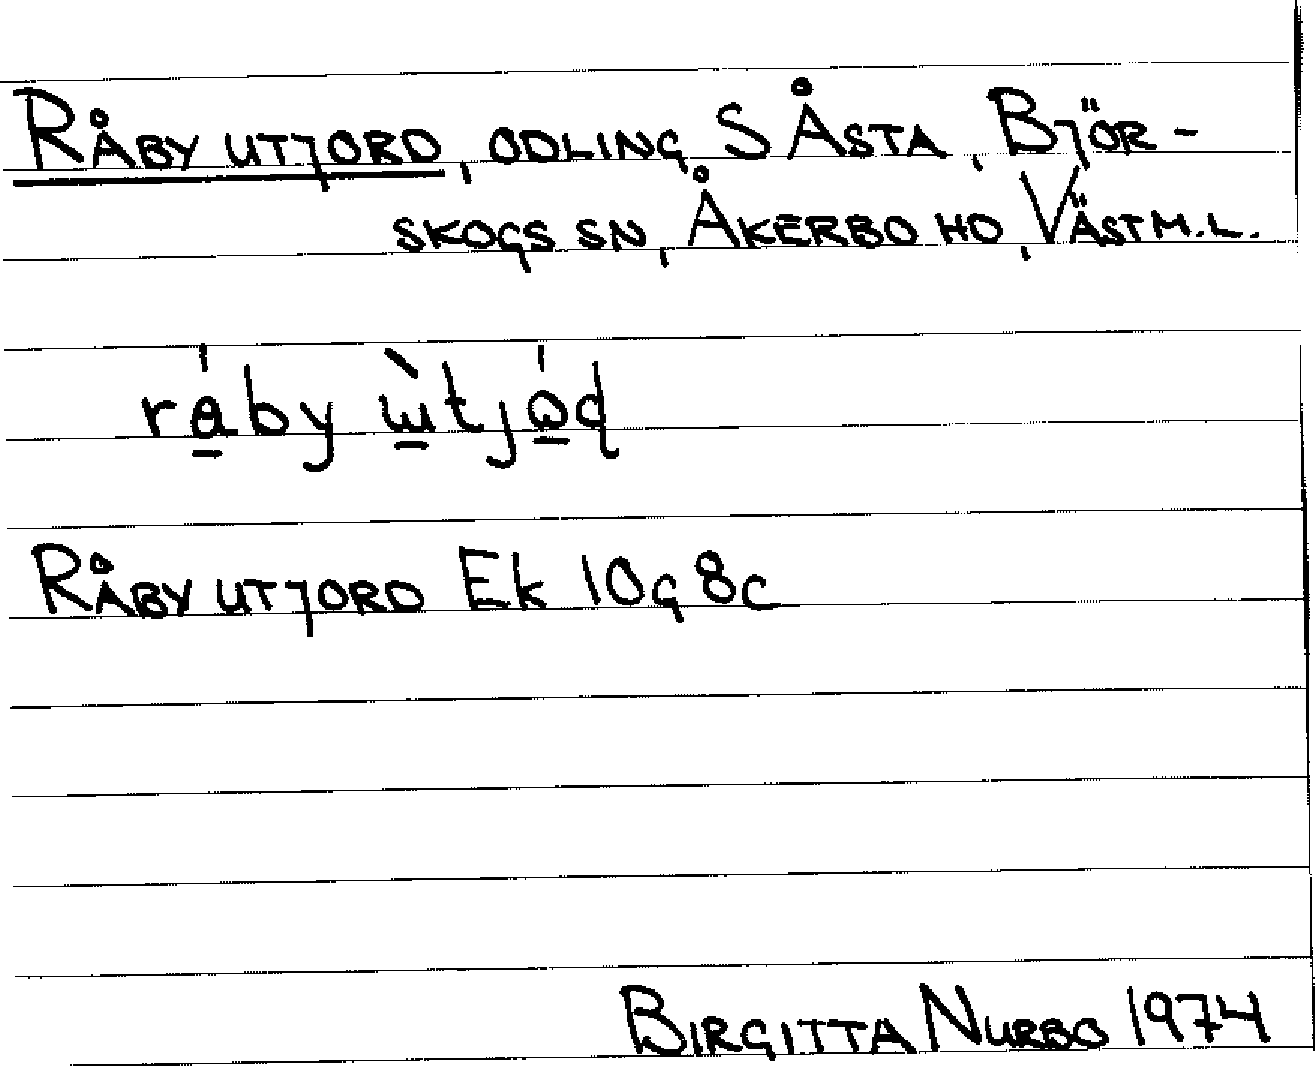 RÅBY UTJORD, ODLING, S ÅSTA, BJÖR-
SKOGS SN, ÅKERBO HD, VÄSTM.L.
RÅBY UTJORD Ek 10G 8c
BIRGITTA NURBO 1974